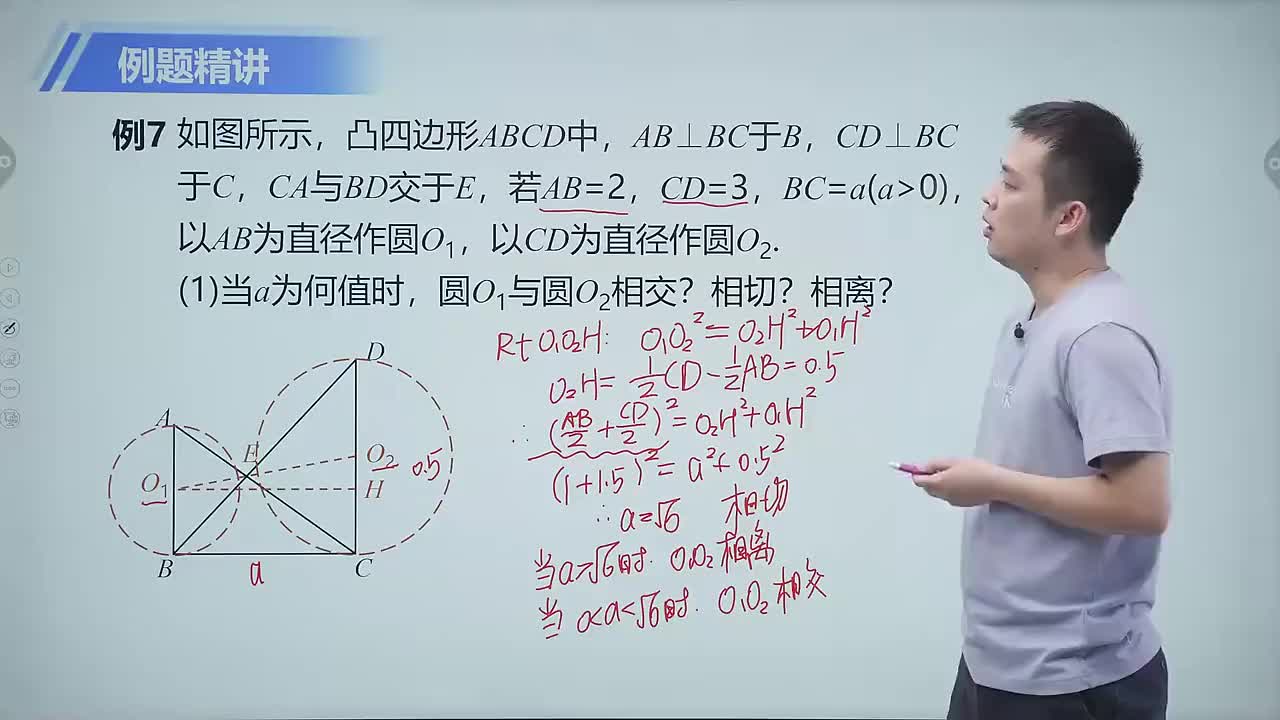 例题精讲
例7 如图所示，凸四边形ABCD中，AB⊥BC于B，CD⊥BC
于C，CA与BD交于E，若AB=2，CD=3，BC=a(a>0)，
以AB为直径作圆O₁，以CD为直径作圆O₂.
(1)当a为何值时，圆O₁与圆O₂相交？相切？相离？
Rt O₁O₂H: O₁O₂²=O₂H²+O₁H²
O₂H=1/2CD-1/2AB=0.5
∴(AB/2+CD/2)²=O₂H²+O₁H²
(1+1.5)²=a²+0.5²
∴a=√6 相切
当a>√6时. O₁O₂相离
当0<a<√6时. O₁O₂相交
D
A
E
O₂
0.5
O₁
H
B
a
C